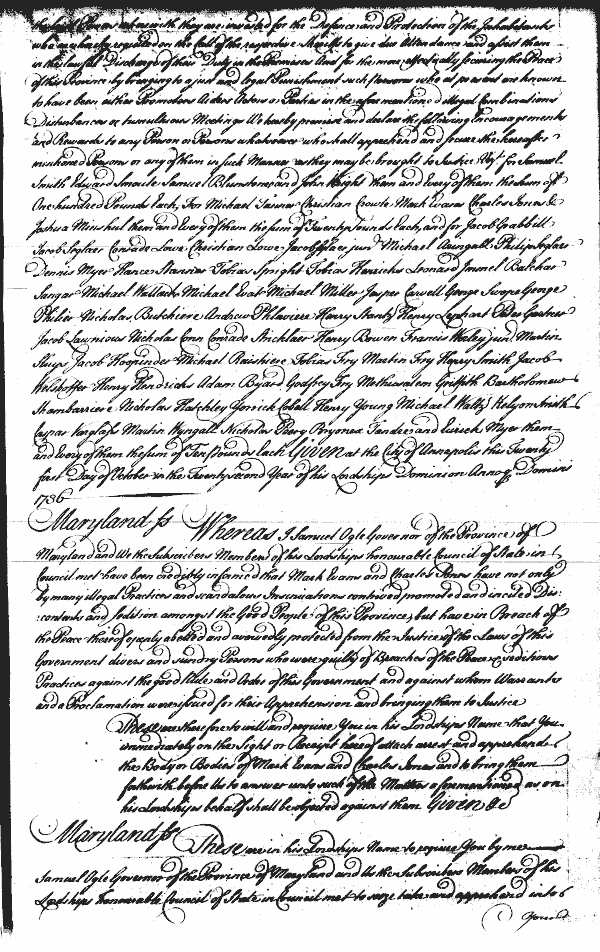 the Civil Power where with they are invested for the Defence and Protection of the Inhabitants
who are hereby required on the Call of the respective Sheriffs to give due Attendance and assist them
in the lawful Discharge of their Duty in the Premises And for the more effectually securing the Peace
of this Province by bringing to a just and legal Punishment such Persons who at present are known
to have been either Promoters Aiders Actors or Parties in the aforementioned illegal Combinations
Disturbances or tumultuous Meetings We hereby promise and declare the following Encouragements
and Rewards to any Person or Persons whatsoever who shall apprehend and secure the hereafter
mentioned Persons or any of them in such Manner as they may be brought to Justice Vizt. for Samuel
Smith Edward Smoute Samuel Blunston and John Wright them and Every of them the sum of
One hundred Pounds Each, For Michael Tanner Christian Crowle Mark Evans Charles Jones &
Joshua Minshul them and Every of them the sum of Twenty Pounds Each, and for Jacob Grabbill
Jacob Seglaer Conrade Lowe Christian Lowe Jacob Seglaer junr Michael Auringall Philip Seglaer
Dennis Myer Hance Stanner Tobias Spright Tobias Henricks Leonard Immel Balchar
Sangar Michael Wallack Michael Evat Michael Miller Jasper Carvell George Swope George
Philier Nicholas Butchiere Andrew Phlaviere Henry Stantz Henry Lephart Peter Gartner
Jacob Lawnious Nicholas Conn Conrade Stricklaer Henry Bowen Francis Worley junr Martin
Sluys Jacob Hoopinder Michael Raishiere Tobias Fry Martin Fry Henry Smith Jacob
Welshoffer Henry Hendricks Adam Byard Godfrey Fry Methusalem Griffith Bartholomew
Shambarriere Nicholas Hatchley Yorrick Cobell Henry Young Michael Waltz Kelyon Smith
Caspar Varglass Martin Wyngall Nicholas Peery Bryonex Tandre and Eurick Myer them
and Every of them the sum of Ten Pounds Each Given at the City of Annapolis this Twenty
first Day of October in the Twenty second Year of his Lordships Dominion Annoq Domini
1736
Maryland ss Whereas I Samuel Ogle Governor of the Province of
Maryland and We the Subscribers Members of his Lordships honourable Council of State in
Council met have been credibly informed that Mark Evans and Charles Jones have not only
by many illegal Practices and scandalous Insinuations contrived promoted and incited Dis:
:contents and sedition amongst the Good People of this Province, but have in Breach of
the Peace thereof openly abetted and avowedly protected from the Justice of the Laws of this
Government divers and sundry Persons who were guilty of Breaches of the Peace & seditious
Practices against the good Rule and Order of this Government and against whom Warrants
and a Proclamation were issued for their Apprehension and bringing them to Justice
These are therefore to will and require You in his Lordships Name that You
immediately on the Sight or Receipt hereof attach arrest and apprehend
the Body or Bodies of Mark Evans and Charles Jones and to bring them
forthwith before Us to answer unto such of the Matters aforementioned as on
his Lordships behalf shall be objected against them Given &c
Maryland ss These are in his Lordships Name to require You by me
Samuel Ogle Governor of the Province of Maryland and Us the Subscribers Members of his
Lordships honourable Council of State in Council met to seize take and apprehend into